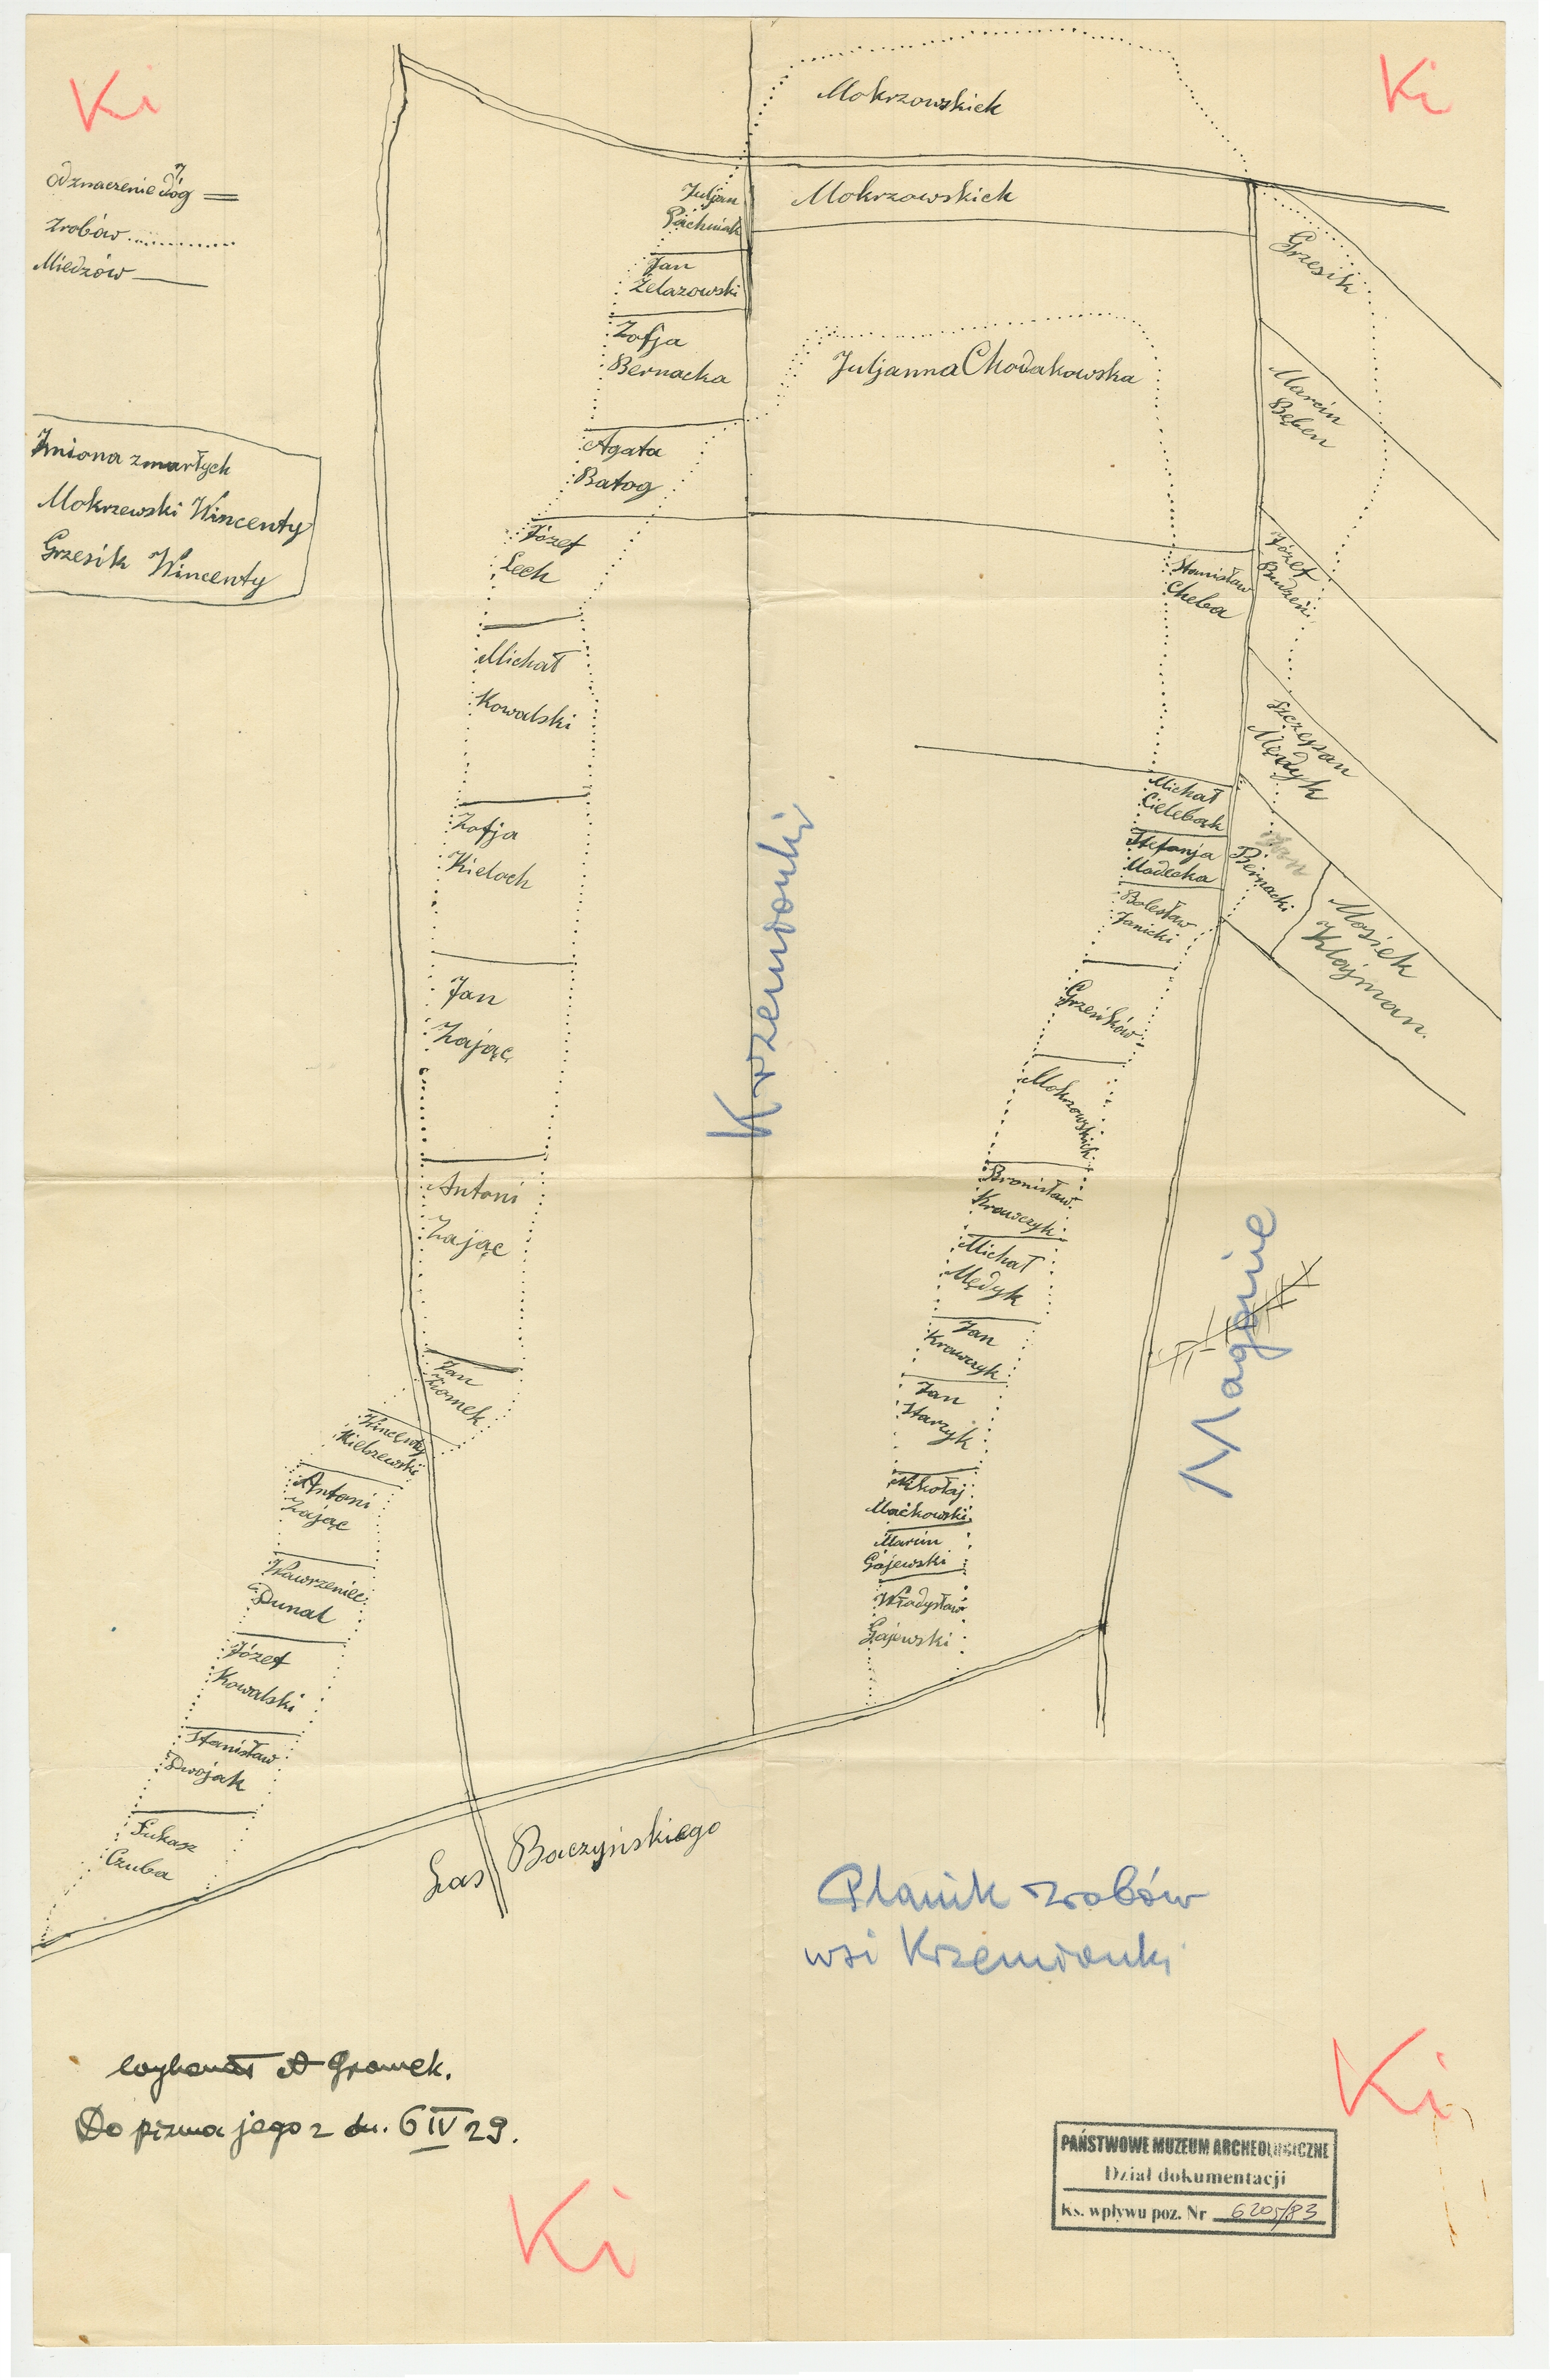 Ki
Ki
Odznaczenie dróg
zrobów
Miedzów
Imiona zmarłych
Mokrzewski Wincenty
Grzesik Wincenty
Mokrzowskich
Mokrzowskich
Juljan
Jan
Żelazowski
Zofja
Bernacka
Agata
Batog
Józef
Lech
Michał
Kowalski
Zofja
Kieloch
Jan
Zając
Antoni
Zając
Jan
Ziomek
Wincenty
Kiełszewski
Antoni
Zając
Wawrzeniec
Dunal
Józef
Kowalski
Stanisław
Dwojak
Łukasz
Czuba
Juljanna Chodakowska
Grzesik
Marcin
Bęben
Józef
Budzeń
Stanisław
Cheba
Szczepan
Mędyk
Michał
Cielebąk
Stefanja
Madecka
Bolesław
Janicki
Jan
Biernacki
Mosiek
Klajman.
Grzesików
Mokrzowskich
Bronisław
Krawczyk
Michał
Mędyk
Jan
Krawczyk
Jan
Starzyk
Mikołaj
Maćkowski
Marcin
Gajewski
Władysław
Gajewski
Krzemionki
Magonie
Las Baczyńskiego
Planik zrobów
wsi Krzemionki
wykonał A Gromek.
Do pisma jego z dn. 6 IV 29.
Ki
Ki
PAŃSTWOWE MUZEUM ARCHEOLOGICZNE
Dział dokumentacji
Ks. wpływu poz. Nr 6205/83